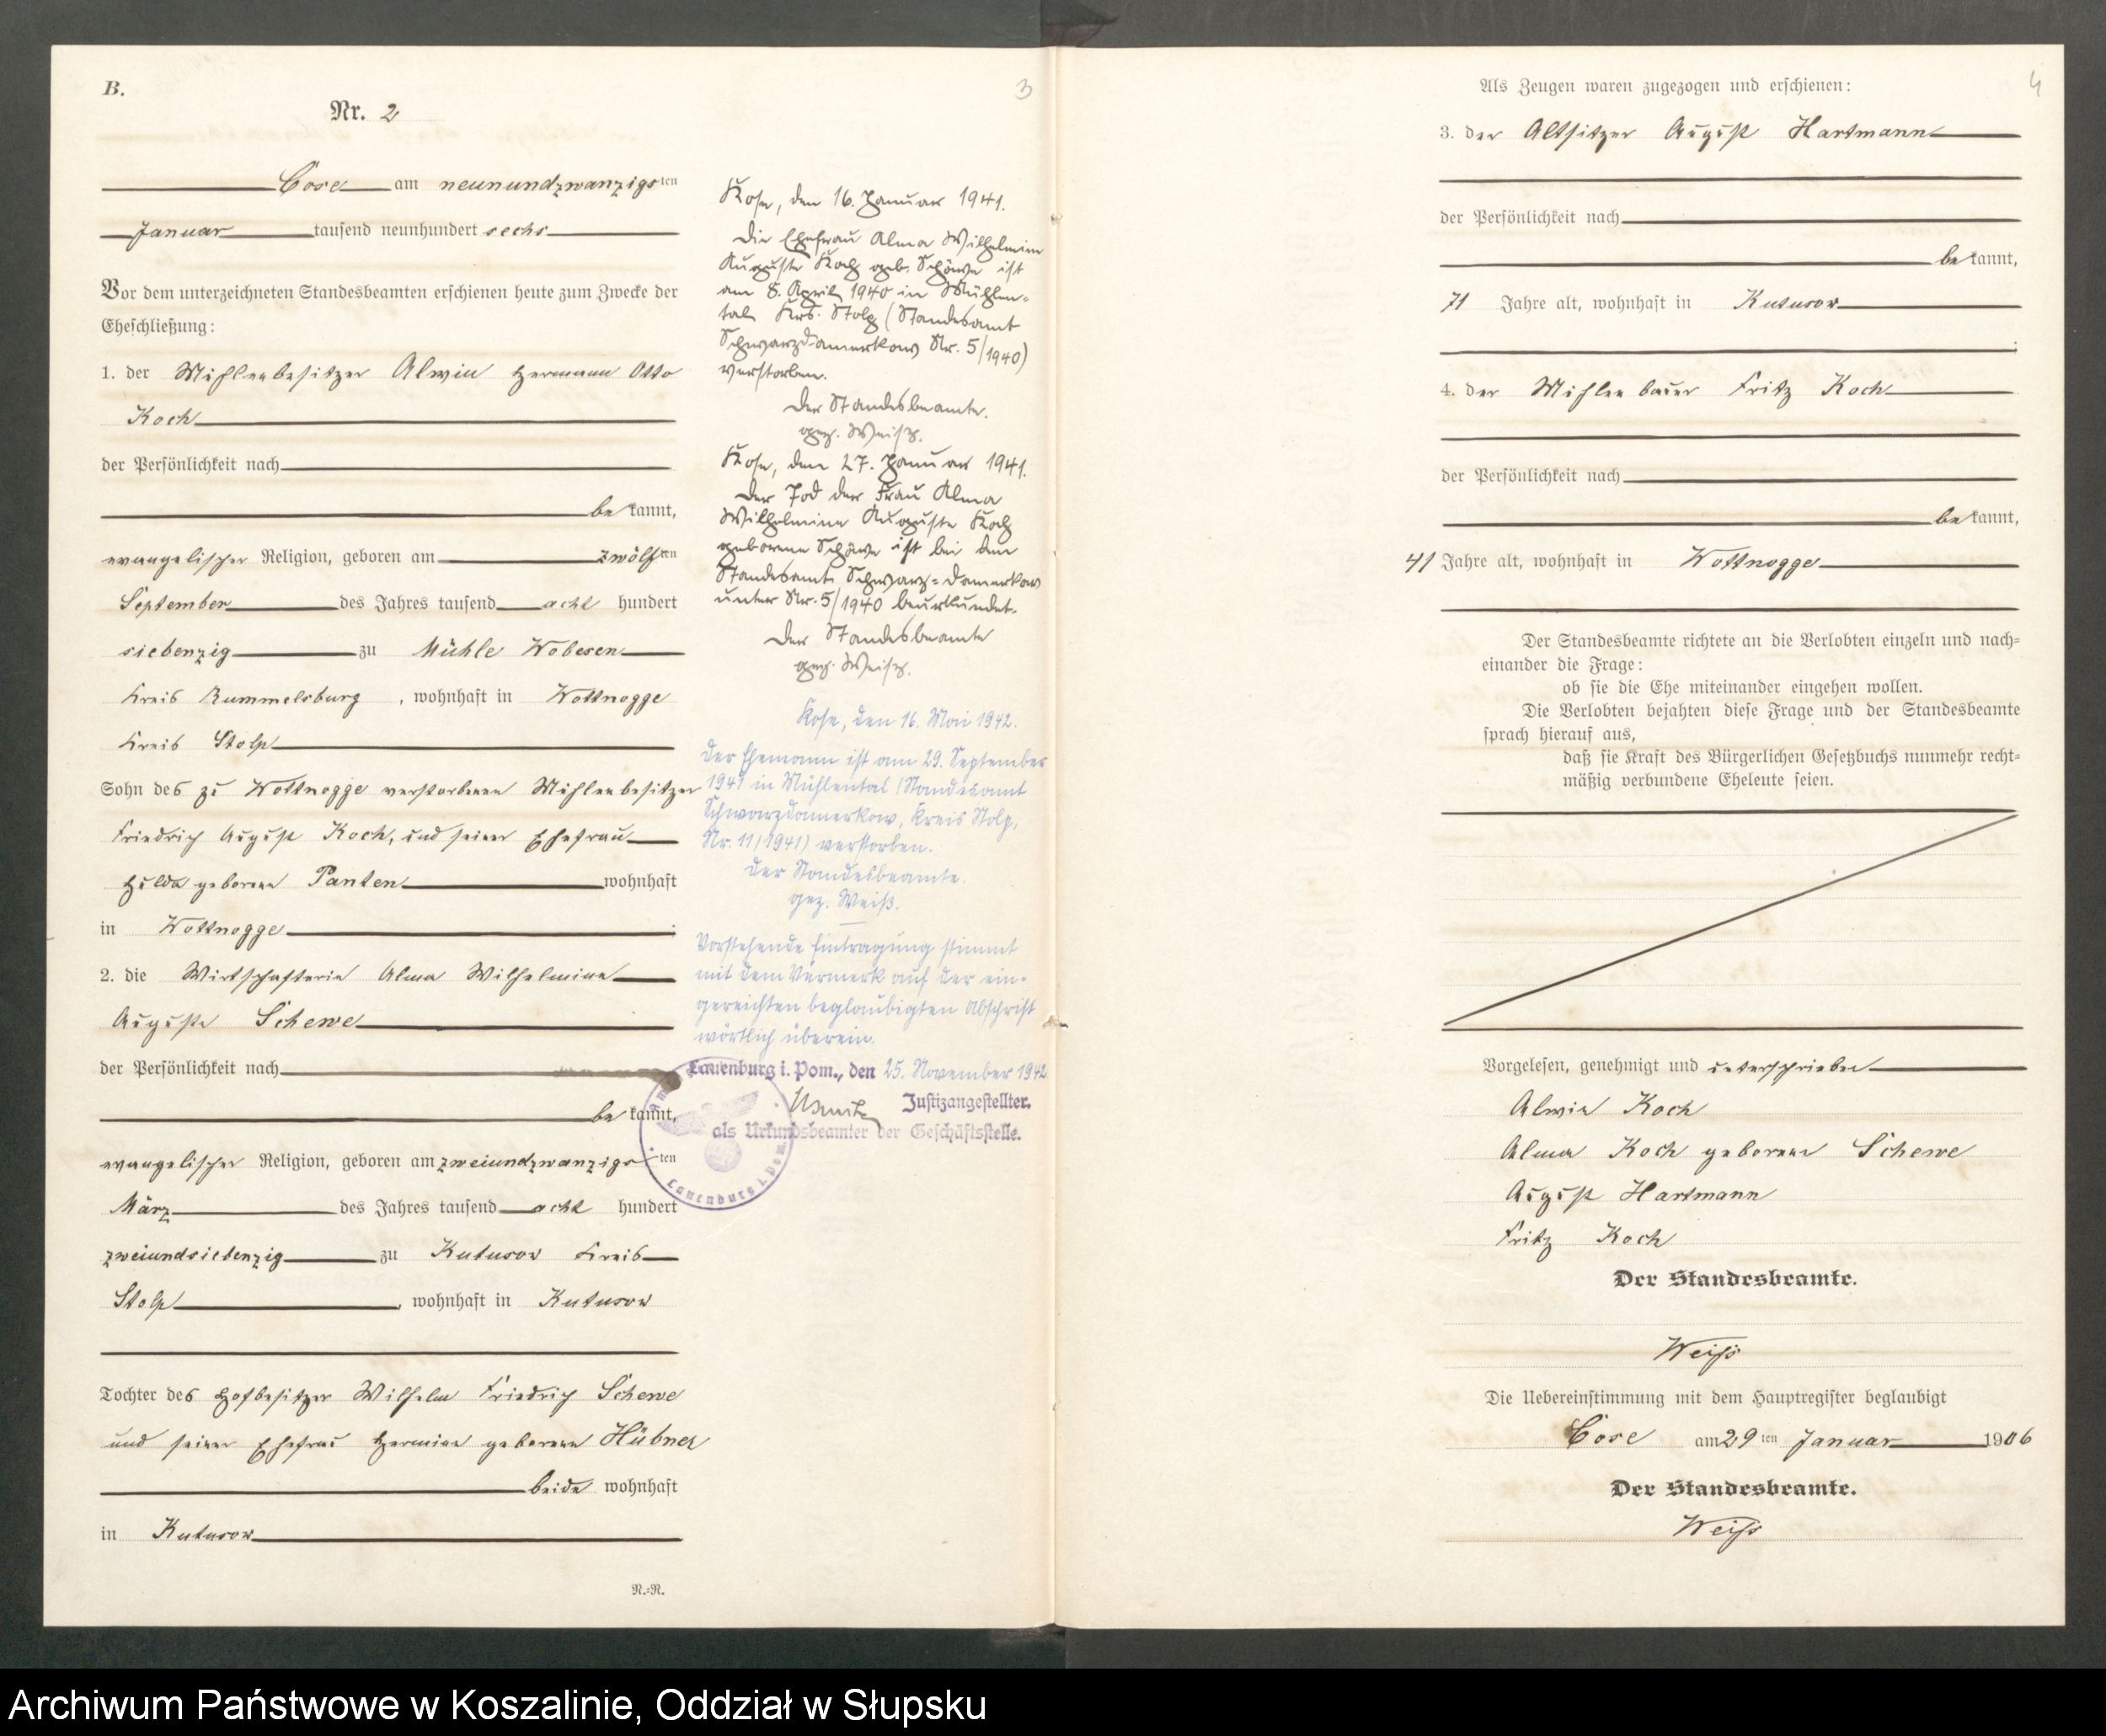 B.
Nr. 2
3
Cose am neunundzwanzigsten
Januar tausend neunhundert sechs
Vor dem unterzeichneten Standesbeamten erschienen heute zum Zwecke der
Eheschließung:
1. der Mühlenbesitzer Alwin Hermann Otto
Koch
der Persönlichkeit nach
bekannt,
evangelischer Religion, geboren am zwölften
September des Jahres tausend acht hundert
siebenzig zu Mühle Wobesen
Kreis Rummelsburg, wohnhaft in Wottnogge
Kreis Stolp
Sohn des zu Wottnogge verstorbenen Mühlenbesitzer
Friedrich August Koch, und seiner Ehefrau
Hulda geborene Panten wohnhaft
in Wottnogge.
2. die Wirtschafterin Alma Wilhelmine
Auguste Schewe
der Persönlichkeit nach
bekannt,
evangelischer Religion, geboren am zweiundzwanzigsten
März des Jahres tausend acht hundert
zweiundsiebenzig zu Kutusow Kreis
Stolp, wohnhaft in Kutusow
Tochter des Hofbesitzer Wilhelm Friedrich Schewe
und seiner Ehefrau Hermine geborene Hübner
beide wohnhaft
in Kutusow
N.-N.
Kose, den 16. Januar 1941.
Die Ehefrau Alma Wilhelmine
Auguste Koch geb. Schöwe ist
am 8. April 1940 in Mühlen-
tal Krs. Stolp (Standesamt
Schwarzdamerkow Nr. 5/1940)
verstorben.
Der Standesbeamte.
gez. Weiß.
Kose, den 27. Januar 1941.
Der Tod der Frau Alma
Wilhelmine Auguste Koch
geborene Schöwe ist bei dem
Standesamt Schwarz-Damerkow
unter Nr. 5/1940 beurkundet.
Der Standesbeamte
gez. Weiß.
Kose, den 16. Mai 1942.
Der Ehemann ist am 29. September
1941 in Mühlental (Standesamt
Schwarzdamerkow, Kreis Stolp,
Nr. 11/1941) verstorben.
Der Standesbeamte.
gez. Weiß.
Vorstehende Eintragung stimmt
mit dem Vermerk auf der ein-
gereichten beglaubigten Abschrift
wörtlich überein.
Lauenburg i. Pom., den 25. November 1942
Justizangestellter.
als Urkundsbeamter der Geschäftsstelle.
Lauenburg i. Pom.
4
Als Zeugen waren zugezogen und erschienen:
3. der Altsitzer August Hartmann
der Persönlichkeit nach
bekannt,
71 Jahre alt, wohnhaft in Kutusow
;
4. der Mühlenbauer Fritz Koch
der Persönlichkeit nach
bekannt,
41 Jahre alt, wohnhaft in Wottnogge
Der Standesbeamte richtete an die Verlobten einzeln und nach-
einander die Frage:
ob sie die Ehe miteinander eingehen wollen.
Die Verlobten bejahten diese Frage und der Standesbeamte
sprach hierauf aus,
daß sie kraft des Bürgerlichen Gesetzbuchs nunmehr recht-
mäßig verbundene Eheleute seien.
Vorgelesen, genehmigt und unterschrieben
Alwin Koch
Alma Koch geborene Schewe
August Hartmann
Fritz Koch
Der Standesbeamte.
Weiß
Die Uebereinstimmung mit dem Hauptregister beglaubigt
Cose am 29ten Januar 1906
Der Standesbeamte.
Weiß
Archiwum Państwowe w Koszalinie, Oddział w Słupsku